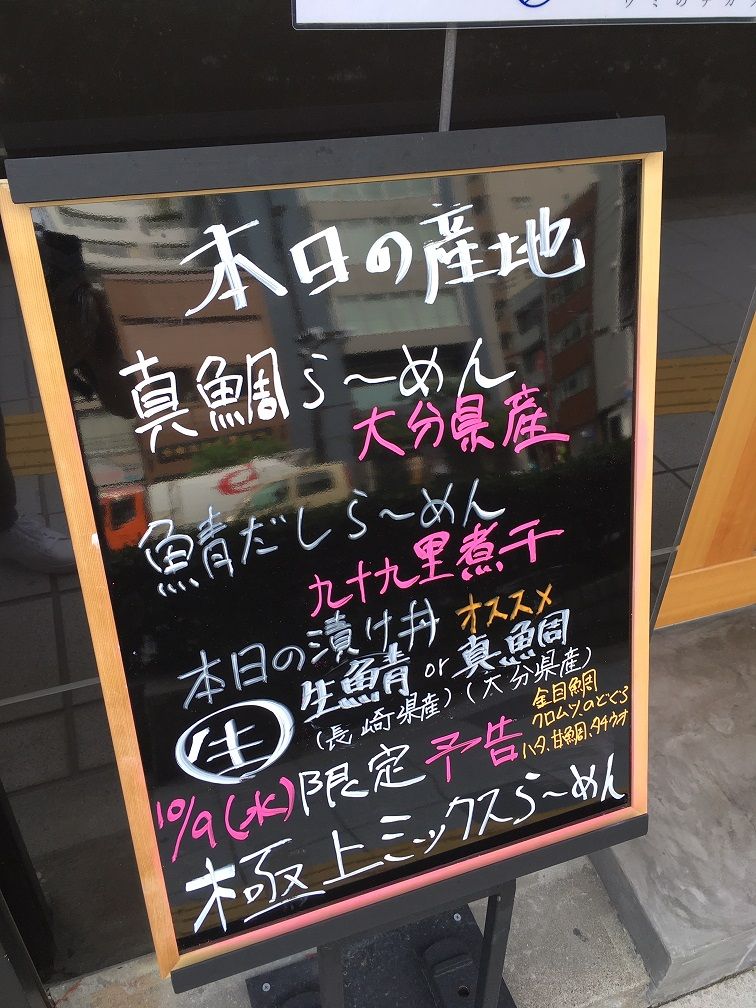 本日の産地
真鯛らーめん
大分県産
鯖だしらーめん
九十九里煮干
本日の漬け丼 オススメ
生 生鯖 or 真鯛
(長崎県産) (大分県産)
10/9(水) 限定 予告
金目鯛
クロムツ、のどぐろ
ハタ、甘鯛、タチウオ
極上ミックスらーめん